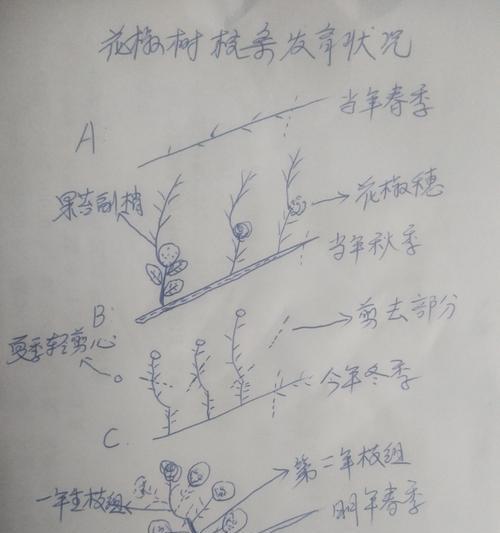 花椒树枝条发育状况
当年春季
A
果苔副梢
花椒穗
当年秋季
B.
剪去部分
夏季轻剪心
今年冬季
C.
第二年枝组
一年生枝组
明年春季